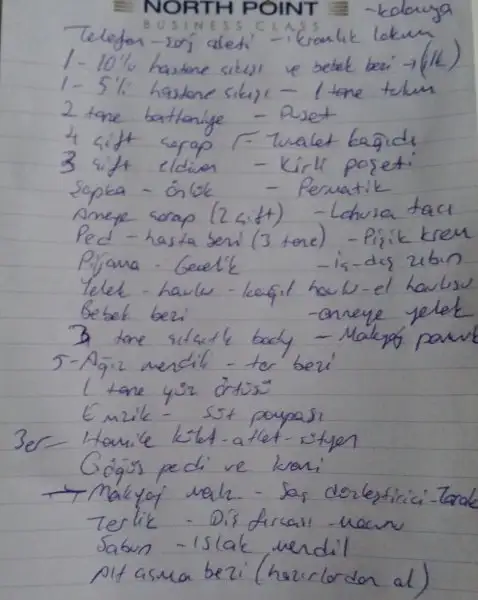 NORTH POINT
BUSINESS CLASS
- kolonya
Telefon - şarj aleti - ikramlık lokum
1 - 10'lu hastane çıkışı ve bebek bezi → (1k)
1 - 5'li hastane çıkışı - 1 tane tulum
2 tane battaniye - Puset
4 çift çorap - Tuvalet kağıdı
3 çift eldiven - Kirli poşeti
Şapka - önlük - Permatik
Anneye çorap (2 çift) - Lohusa tacı
Ped - hasta bezi (3 tane) - Pişik krem
Pijama - Gecelik - iç-dış zıbın
Yelek - havlu - kağıt havlu - el havlusu
Bebek bezi - anneye yelek
3 tane çıtçıtlı body - Makyaj pamuk
5 - Ağız mendil - ter bezi
1 tane yüz örtüsü
Emzik - Süt pompası
3er - Hamile külot - atlet - sütyen
Göğüs pedi ve kremi
→ Makyaj malz - Saç düzleştirici - Tarak
Terlik - Diş fırçası - macunu
Sabun - ıslak mendil
Alt açma bezi (hazırlardan al)